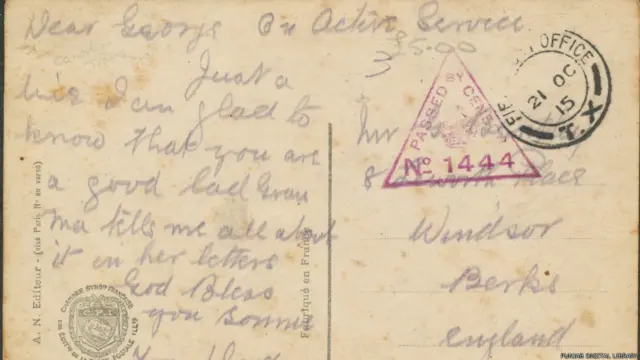 Dear George On Active Service
Just a
line I am glad to
know that you are
a good lad Gran
Ma tells me all about
it in her letters
God Bless
you Sonnie
35-00
PASSED BY CENSOR
No 1444
OFFICE
21 OC
15
T.X
Mr
8 Place
Windsor
Berks
England
A. N. Editeur - Paris
Fabriqué en France
CHAMBRE SYNDICALE FRANÇAISE
PUNJAB DIGITAL LIBRARY